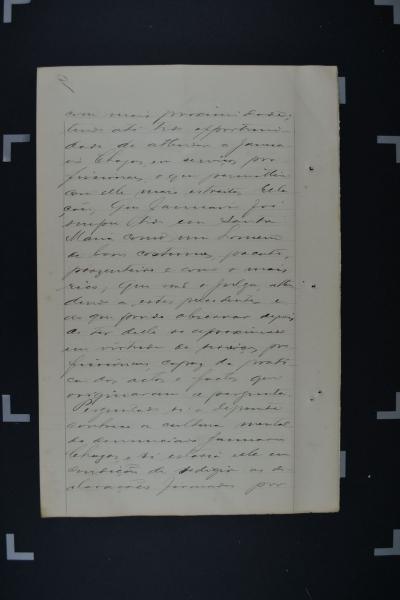 com mais proximidade;
tendo até tido opportuni-
dade de attender a Janua-
rio Chagas em serviços pro-
fissionaes, o que permittio
com elle mais estreitas rela-
ções; Que Januario foi
sempre tido em Santa
Maria como um homem
de bons costumes, pacato,
prazenteiro e com o mais
que não o julga, atten-
dendo a estes precedentes e
ao que poude observar depois
de ter delle se approximado
em virtude de serviços pro-
fissionaes, capaz de prati-
ca dos actos e factos que
originaram a pergunta.
Perguntado se o depoente
conhece a cultura mental
do denunciado Januario
Chagas, e si estava elle em
condições de redigir as de-
clarações firmadas por